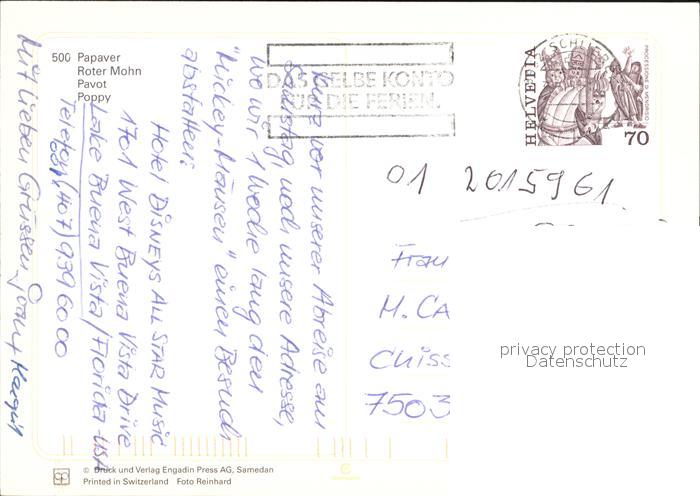 500 Papaver
Roter Mohn
Pavot
Poppy
DAS GELBE KONTO
FÜR DIE FERIEN.
HELVETIA
PROCESSIONE DI MENDRISIO
70
01 2015961
Kurz vor unserer Abreise am
Samstag, noch unsere Adresse,
wo wir 1 Woche lang den
"Mickey-Mäusen" einen Besuch
abstatten:
Hotel DISNEYS ALL STAR MUSIC
1701 West Buena Vista Drive
Lake Buena Vista/Florida-USA
Telefon (407) 9396000
001
Mit lieben Grüssen
Frau
M. CA
Chiss
7503
privacy protection
Datenschutz
© Druck und Verlag Engadin Press AG, Samedan
Printed in Switzerland Foto Reinhard